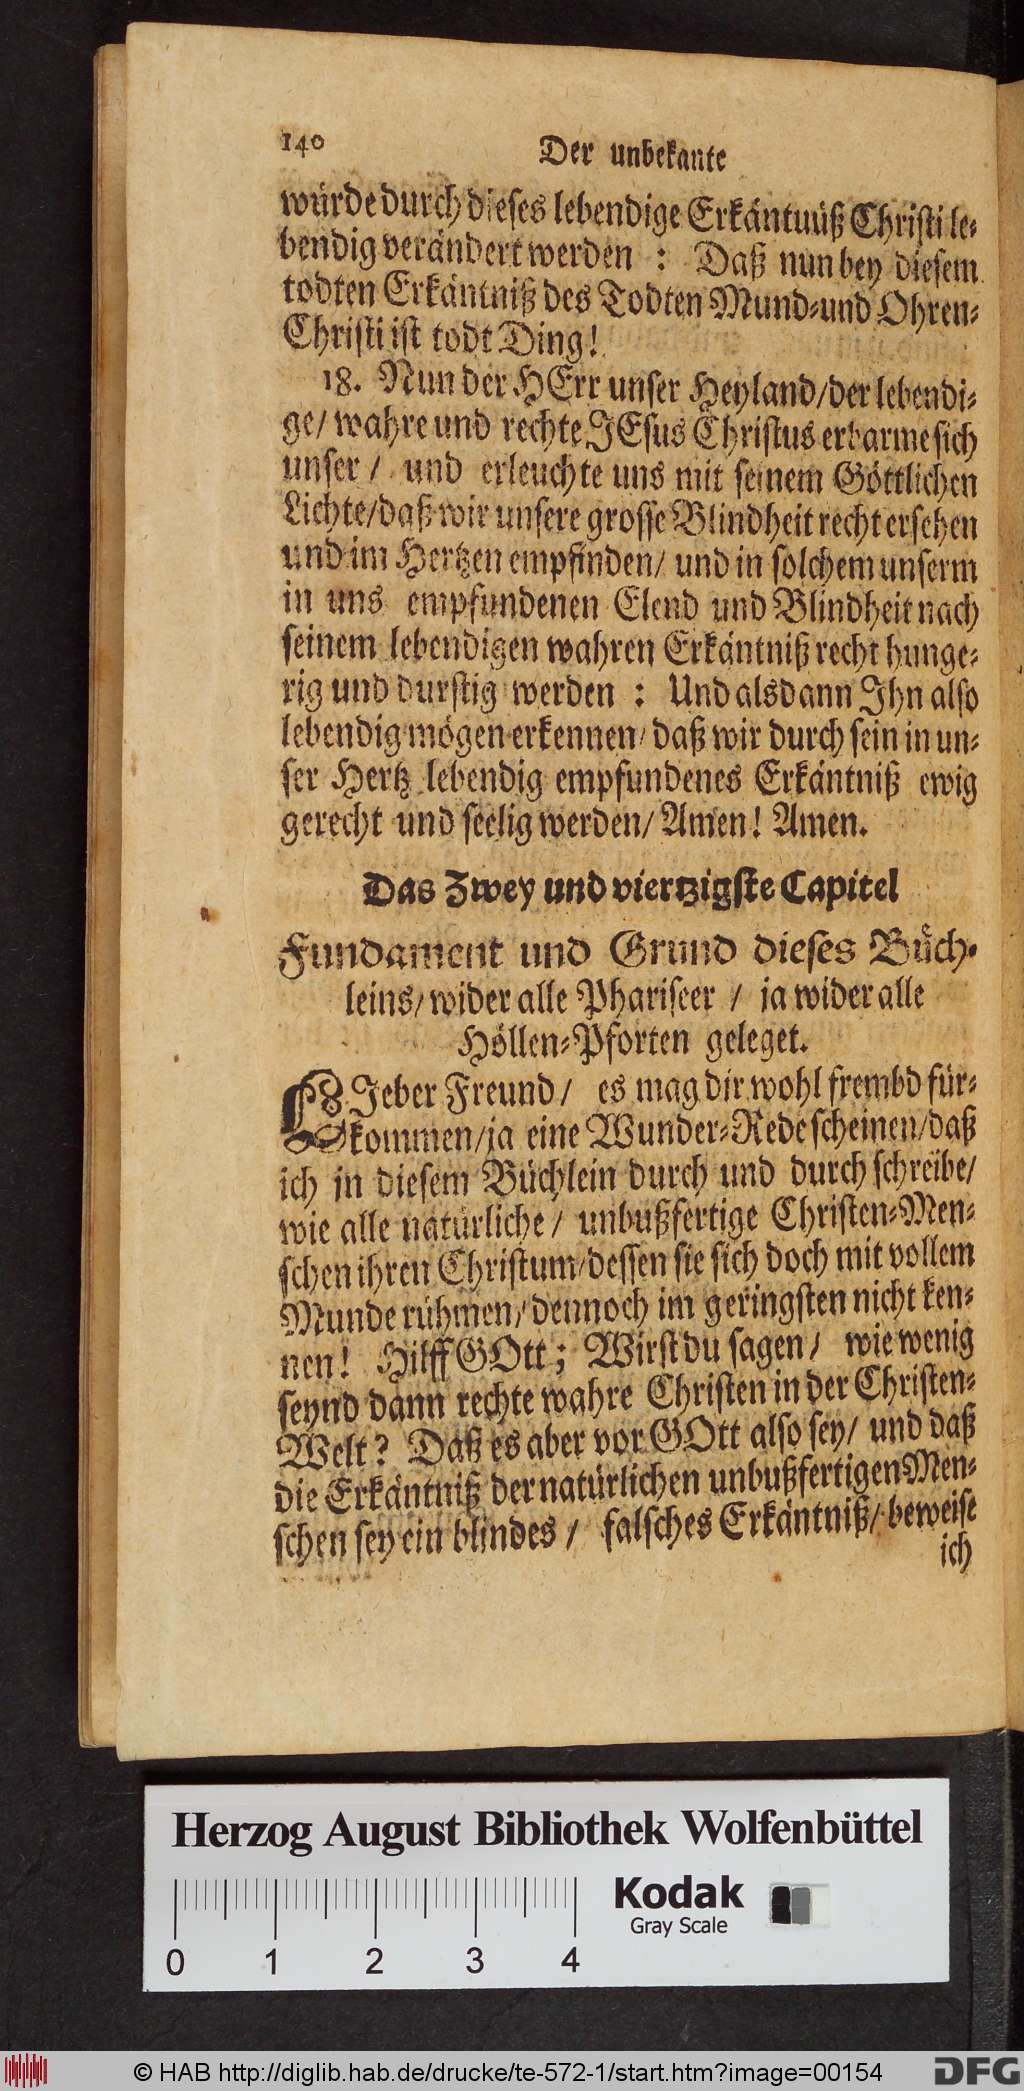 140 Der unbekante
würde durch dieses lebendige Erkäntnüß Christi le-
bendig verändert werden : Daß nun bey diesem
todten Erkäntniß des Todten Mund-und Ohren-
Christi ist todt Ding!
18. Nun der HErr unser Heyland/der lebendi-
ge/ wahre und rechte JEsus Christus erbarme sich
unser / und erleuchte uns mit seinem Göttlichen
Lichte/daß wir unsere grosse Blindheit recht ersehen
und im Hertzen empfinden/ und in solchem unserm
in uns empfundenen Elend und Blindheit nach
seinem lebendigen wahren Erkäntniß recht hunge-
rig und durstig werden : Und alsdann Ihn also
lebendig mögen erkennen/ daß wir durch sein in un-
ser Hertz lebendig empfundenes Erkäntniß ewig
gerecht und seelig werden/ Amen! Amen.
Das Zwey und viertzigste Capitel
Fundament und Grund dieses Büch-
leins/ wider alle Phariseer / ja wider alle
Höllen-Pforten geleget.
LIeber Freund/ es mag dir wohl frembd für-
kommen/ja eine Wunder-Rede scheinen/daß
ich in diesem Büchlein durch und durch schreibe/
wie alle natürliche/ unbußfertige Christen-Men-
schen ihren Christum/dessen sie sich doch mit vollem
Munde rühmen/dennoch im geringsten nicht ken-
nen! Hilff GOtt; Wirst du sagen/ wie wenig
seynd dann rechte wahre Christen in der Christen-
Welt? Daß es aber vor GOtt also sey/ und daß
die Erkäntniß der natürlichen unbußfertigen Men-
schen sey ein blindes / falsches Erkäntniß/ beweise
ich
Herzog August Bibliothek Wolfenbüttel
Kodak
Gray Scale
0 1 2 3 4
© HAB http://diglib.hab.de/drucke/te-572-1/start.htm?image=00154
DFG